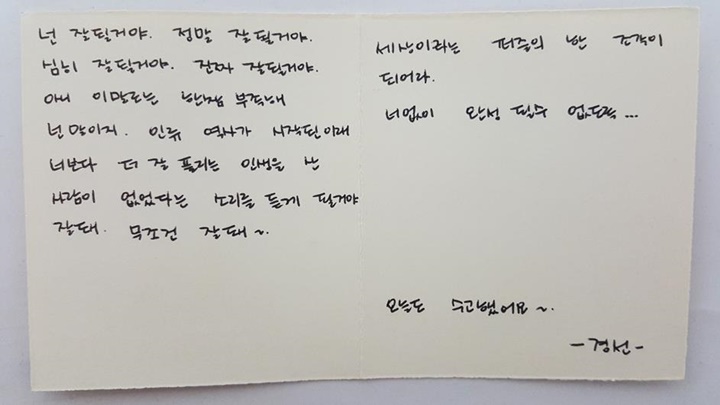 넌 잘될거야. 정말 잘될거야.
심히 잘될거야. 진짜 잘될거야.
아니 이말로는 한참 부족해
넌 말이지. 인류 역사가 시작된이래
너보다 더 잘 풀리는 인생을 산
사람이 없었다는 소리를 듣게 될거야
잘돼. 무조건 잘돼~.
세상이라는 퍼즐의 한 조각이
되어라.
너없이 완성 될수 없도록...
오늘도 수고했어요~.
-경선-